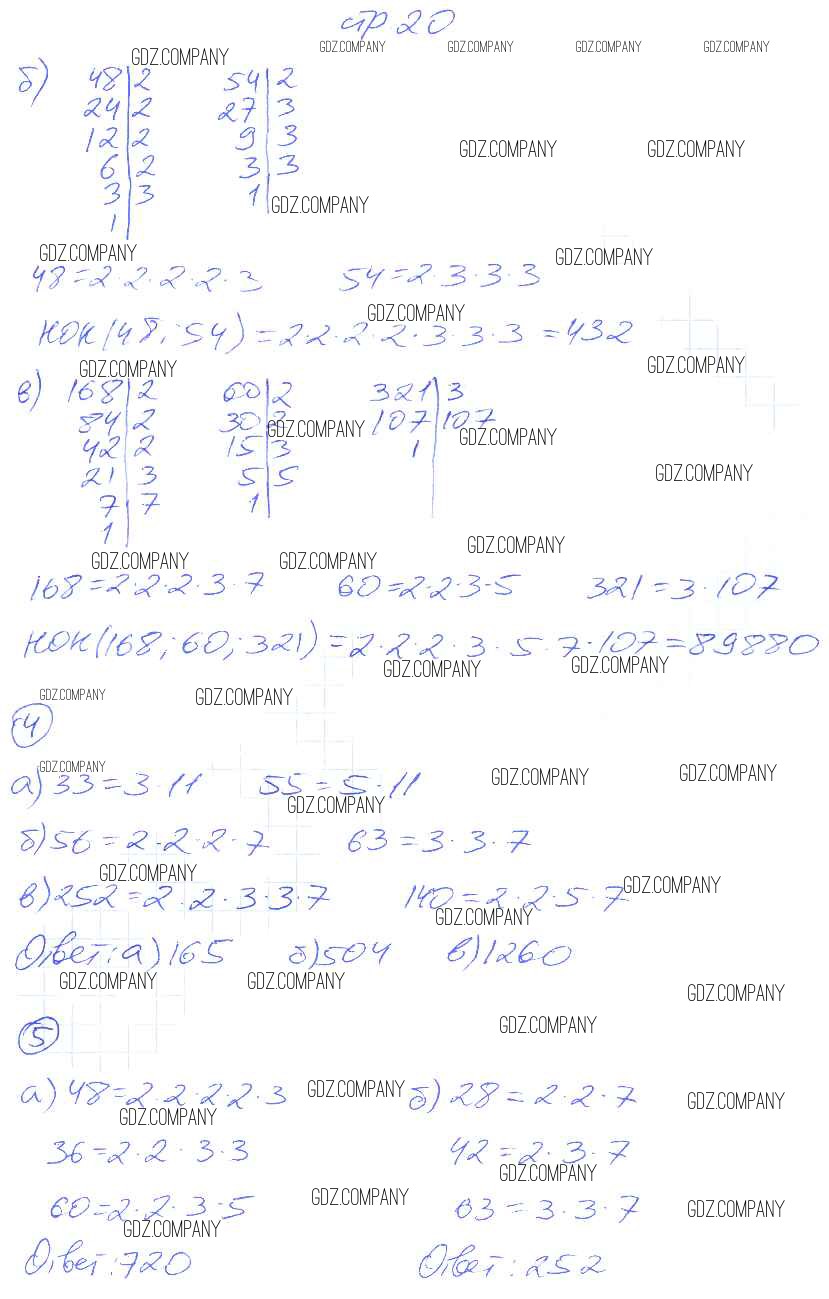 стр 20
GDZ.COMPANY GDZ.COMPANY GDZ.COMPANY GDZ.COMPANY GDZ.COMPANY
б) 48|2 54|2
24|2 27|3
12|2 9|3 GDZ.COMPANY GDZ.COMPANY
6|2 3|3
3|3 1| GDZ.COMPANY
1|
GDZ.COMPANY GDZ.COMPANY
48=2·2·2·2·3 54=2·3·3·3
GDZ.COMPANY
НОК(48; 54)=2·2·2·2·3·3·3=432
GDZ.COMPANY GDZ.COMPANY
в) 168|2 60|2 321|3
84|2 30|2 107|107 GDZ.COMPANY GDZ.COMPANY
42|2 15|3 1|
21|3 5|5 GDZ.COMPANY
7|7 1|
1|
GDZ.COMPANY GDZ.COMPANY GDZ.COMPANY
168=2·2·2·3·7 60=2·2·3·5 321=3·107
НОК(168; 60; 321)=2·2·2·3·5·7·107=89880
GDZ.COMPANY GDZ.COMPANY
GDZ.COMPANY GDZ.COMPANY
4
GDZ.COMPANY GDZ.COMPANY GDZ.COMPANY
а) 33=3·11 55=5·11
GDZ.COMPANY
б) 56=2·2·2·7 63=3·3·7
GDZ.COMPANY GDZ.COMPANY
в) 252=2·2·3·3·7 140=2·2·5·7
GDZ.COMPANY
Ответ: а) 165 б) 504 в) 1260
GDZ.COMPANY GDZ.COMPANY GDZ.COMPANY
5 GDZ.COMPANY
а) 48=2·2·2·2·3 GDZ.COMPANY б) 28=2·2·7 GDZ.COMPANY
GDZ.COMPANY
36=2·2·3·3 42=2·3·7
GDZ.COMPANY
60=2·2·3·5 GDZ.COMPANY 63=3·3·7 GDZ.COMPANY
GDZ.COMPANY
Ответ: 720 Ответ: 252